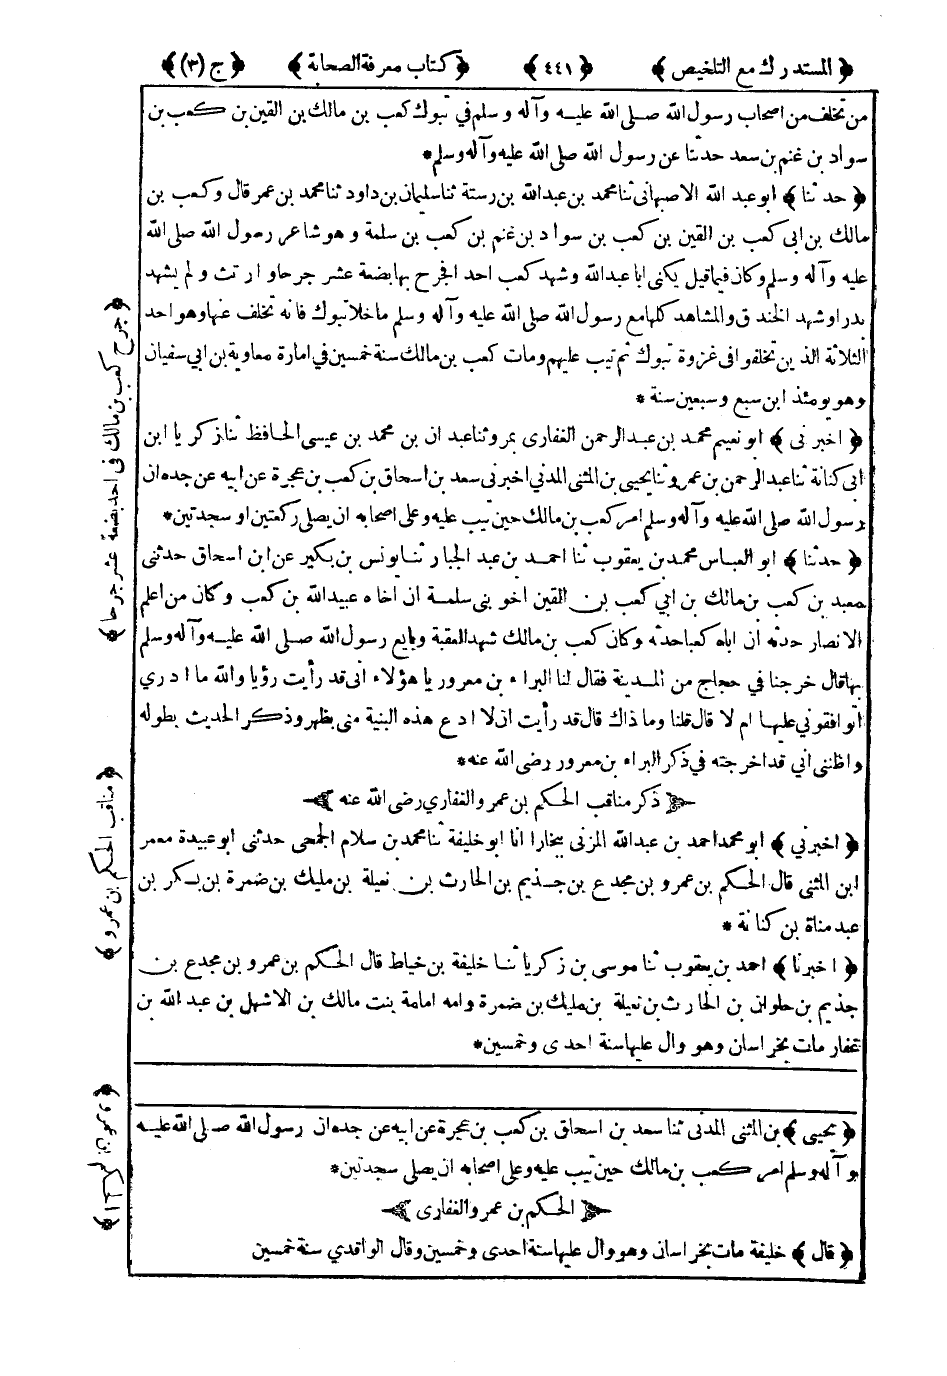 ﴿ المستدرك مع التلخيص ﴾ ﴿ ٤٤١ ﴾ ﴿ كتاب معرفة الصحابة ﴾ ﴿ ج (٣) ﴾
من تخلف من اصحاب رسول الله صلى الله عليه وآله وسلم في تبوك كعب بن مالك بن القين بن كعب بن
سواد بن غنم بن سعد حدثنا عن رسول الله صلى الله عليه وآله وسلم *
﴿ حدثنا ﴾ ابو عبد الله الاصبهاني ثنا محمد بن عبدالله بن رستة ثنا سليمان بن داود ثنا محمد بن عمر قال وكعب بن
مالك بن ابى كعب بن القين بن كعب بن سواد بن غنم بن كعب بن سلمة وهو شاعر رسول الله صلى الله
عليه وآله وسلم وكان فيما قيل يكنى ابا عبدالله وشهد كعب احد الجرح بها بضعة عشر جرحا وارتث ولم يشهد
بدرا وشهد الخندق والمشاهد كلها مع رسول الله صلى الله عليه وآله وسلم ما خلا تبوك فانه تخلف عنها وهو احد
الثلاثة الذين تخلفوا فى غزوة تبوك ثم تيب عليهم ومات كعب بن مالك سنة خمسين في امارة معاوية بن ابي سفيان
وهو يومئذ ابن سبع وسبعين سنة *
﴿ اخبرنى ﴾ ابو نعيم محمد بن عبد الرحمن الغفارى بمرو ثنا عبد ان بن محمد بن عيسى الحافظ ثنا زكريا ابن
ابى كنانة ثنا عبد الرحمن بن عمرو ثنا يحيى بن المثنى المدني اخبرنى سعد بن اسحاق بن كعب بن عجرة عن ابيه عن جده ان
رسول الله صلى الله عليه وآله وسلم امر كعب بن مالك حين تيب عليه وعلى اصحابه ان يصلى ركعتين او سجدتين *
﴿ حدثنا ﴾ ابو العباس محمد بن يعقوب ثنا احمد بن عبد الجبار ثنا يونس بن بكير عن ابن اسحاق حدثنى
معبد بن كعب بن مالك بن ابي كعب بن القين اخو بني سلمة ان اخاه عبيدالله بن كعب وكان من اعلم
الانصار حدثه ان اباه كعبا حدثه وكان كعب بن مالك شهد العقبة وبايع رسول الله صلى الله عليه وآله وسلم
بها قال خرجنا في حجاج من المدينة فقال لنا البراء بن معرور يا هؤلاء انى قد رأيت رؤيا والله ما ادري
اتوافقوني عليها ام لا قال قلنا وما ذاك قال قد رأيت ان لا ادع هذه البنية منى بظهر وذكر الحديث بطوله
واظننى اني قد اخرجته في ذكر البراء بن معرور رضى الله عنه *
﴿ ذكر مناقب الحكم بن عمرو الغفاري رضى الله عنه ﴾
﴿ اخبرني ﴾ ابو محمد احمد بن عبدالله المزنى ببخارا انا ابو خليفة ثنا محمد بن سلام الجمحى حدثنى ابو عبيدة معمر
ابن المثنى قال الحكم بن عمرو بن مجدع بن جذيم بن الحارث بن نعيلة بن مليك بن ضمرة بن بكر بن
عبد مناة بن كنانة *
﴿ اخبرنا ﴾ احمد بن يعقوب ثنا موسى بن زكريا ثنا خليفة بن خياط قال الحكم بن عمرو بن مجدع بن
جذيم بن حلوان بن الحارث بن نعيلة بن مليك بن ضمرة وامه امامة بنت مالك بن الاشهل بن عبد الله بن
غفار مات بخراسان وهو وال عليها سنة احدى وخمسين *
﴿ يحيى ﴾ بن المثنى المدنى ثنا سعد بن اسحاق بن كعب بن عجرة عن ابيه عن جده ان رسول الله صلى الله عليه
وآله وسلم امر كعب بن مالك حين تيب عليه وعلى اصحابه ان يصلى سجدتين *
﴿ الحكم بن عمرو الغفارى ﴾
﴿ قال ﴾ خليفة مات بخراسان وهو وال عليها سنة احدى وخمسين وقال الواقدي سنة خمسين
﴿ جرح كعب بن مالك فى احد بضعة عشر جرحا ﴾
﴿ مناقب الحكم بن عمرو ﴾